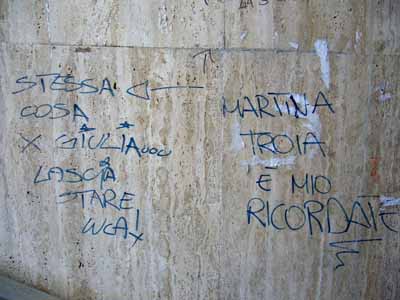 STESSA
COSA
X GIULIA
LASCIA
STARE
LUCA!
MARTINA
TROIA
E' MIO
RICORDATE